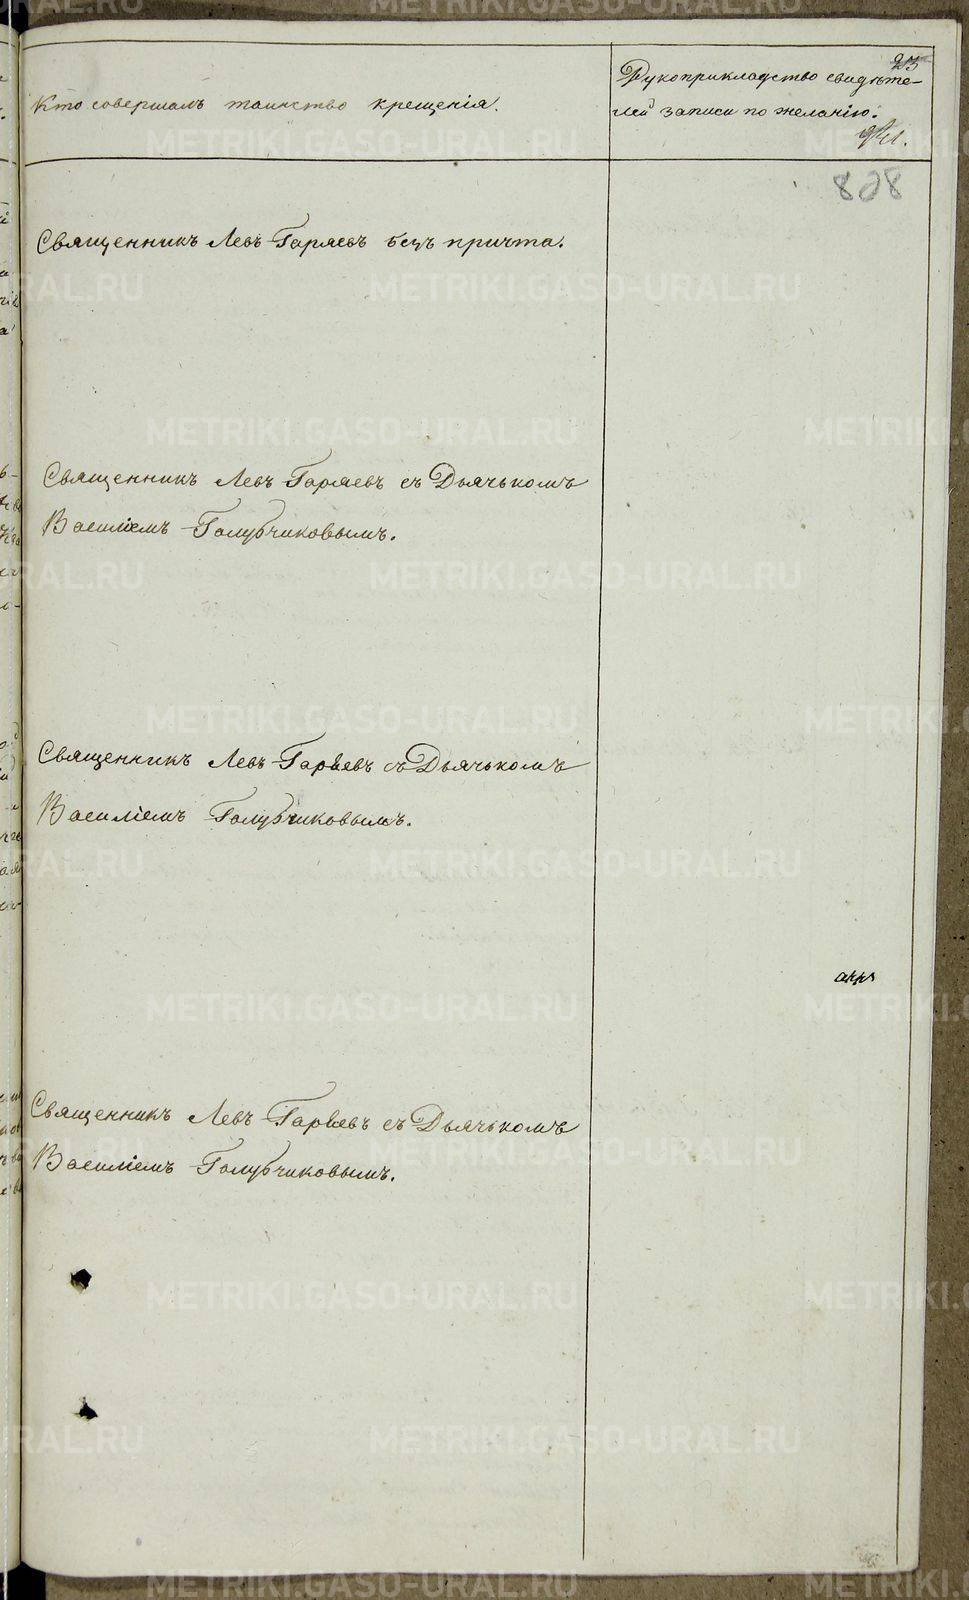 Кто совершалъ таинство крещенія.
Рукоприкладство свидѣте-
лей записи по желанію.
828
Священникъ Левъ Гаряевъ безъ причта.
Священникъ Левъ Гаряевъ съ Дьячькомъ
Василіемъ Голубчиковымъ.
Священникъ Левъ Гаряевъ съ Дьячькомъ
Василіемъ Голубчиковымъ.
Священникъ Левъ Гаряевъ съ Дьячькомъ
Василіемъ Голубчиковымъ.
METRIKI.GASO-URAL.RU